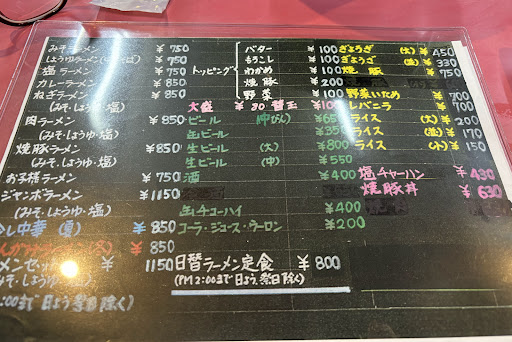 みそラーメン ¥750
しょうゆラーメン ¥750
塩ラーメン ¥750
カレーラーメン ¥850
ねぎラーメン ¥850
(みそ・しょうゆ・塩)
肉ラーメン ¥850
(みそ・しょうゆ・塩)
焼豚ラーメン ¥850
(みそ・しょうゆ・塩)
お子様ラーメン ¥750
ジャンボラーメン ¥1150
(みそ・しょうゆ・塩)
冷し中華(夏) ¥850
¥850
メンセット ¥1150
みそ・しょうゆ・塩
2:00まで日よう、祭日除く)
トッピング
バター ¥100
もろこし ¥100
わかめ ¥100
焼豚 ¥200
野菜 ¥100
大盛 ¥30 替玉 ¥100
ビール (中びん) ¥650
缶ビール ¥350
生ビール (大) ¥800
生ビール (中) ¥550
酒 ¥400
缶チューハイ ¥400
コーラ・ジュース・ウーロン ¥200
日替ラーメン定食 ¥800
(PM2:00まで日よう、祭日除く)
ぎょうざ (大) ¥450
ぎょうざ ¥330
焼豚 ¥750
野菜いため ¥700
レバニラ ¥700
ライス (大) ¥200
ライス ¥170
ライス (小) ¥150
塩チャーハン ¥430
焼豚丼 ¥630